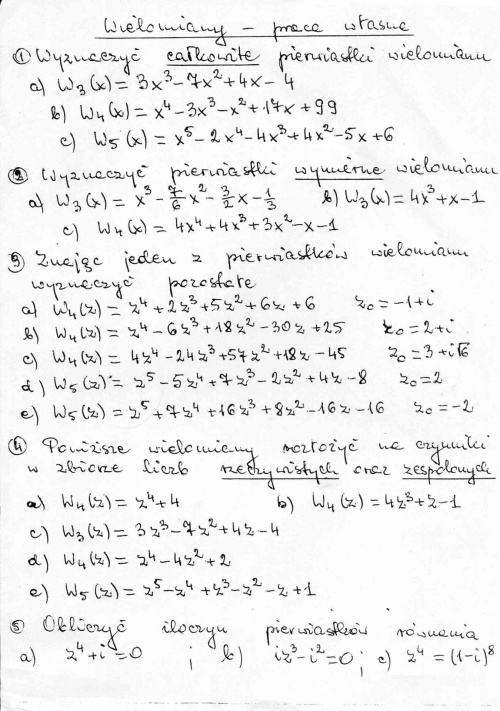 Wielomiany – praca własna
① Wyznaczyć całkowite pierwiastki wielomianu
a) W₃(x) = 3x³-7x²+4x-4
b) W₄(x) = x⁴-3x³-x²+17x+99
c) W₅(x) = x⁵-2x⁴-4x³+4x²-5x+6
② Wyznaczyć pierwiastki wymierne wielomianu
a) W₃(x) = x³-7/6x²-3/2x-1/3 b) W₃(x) = 4x³+x-1
c) W₄(x) = 4x⁴+4x³+3x²-x-1
③ Znając jeden z pierwiastków wielomianu
wyznaczyć pozostałe
a) W₄(z) = z⁴+2z³+5z²+6z+6 z₀=-1+i
b) W₄(z) = z⁴-6z³+18z²-30z+25 z₀=2+i
c) W₄(z) = 4z⁴-24z³+57z²+18z-45 z₀=3+i√6
d) W₅(z) = z⁵-5z⁴+7z³-2z²+4z-8 z₀=2
e) W₅(z) = z⁵+7z⁴+16z³+8z²-16z-16 z₀=-2
④ Poniższe wielomiany rozłożyć na czynniki
w zbiorze liczb rzeczywistych oraz zespolonych
a) W₄(z) = z⁴+4 b) W₄(z) = 4z³+z-1
c) W₃(z) = 3z³-7z²+4z-4
d) W₄(z) = z⁴-4z²+2
e) W₅(z) = z⁵-z⁴+z³-z²-z+1
⑤ Obliczyć iloczyn pierwiastków równania
a) z⁴+i=0 ; b) iz³-i²=0 ; c) z⁴=(1-i)⁸